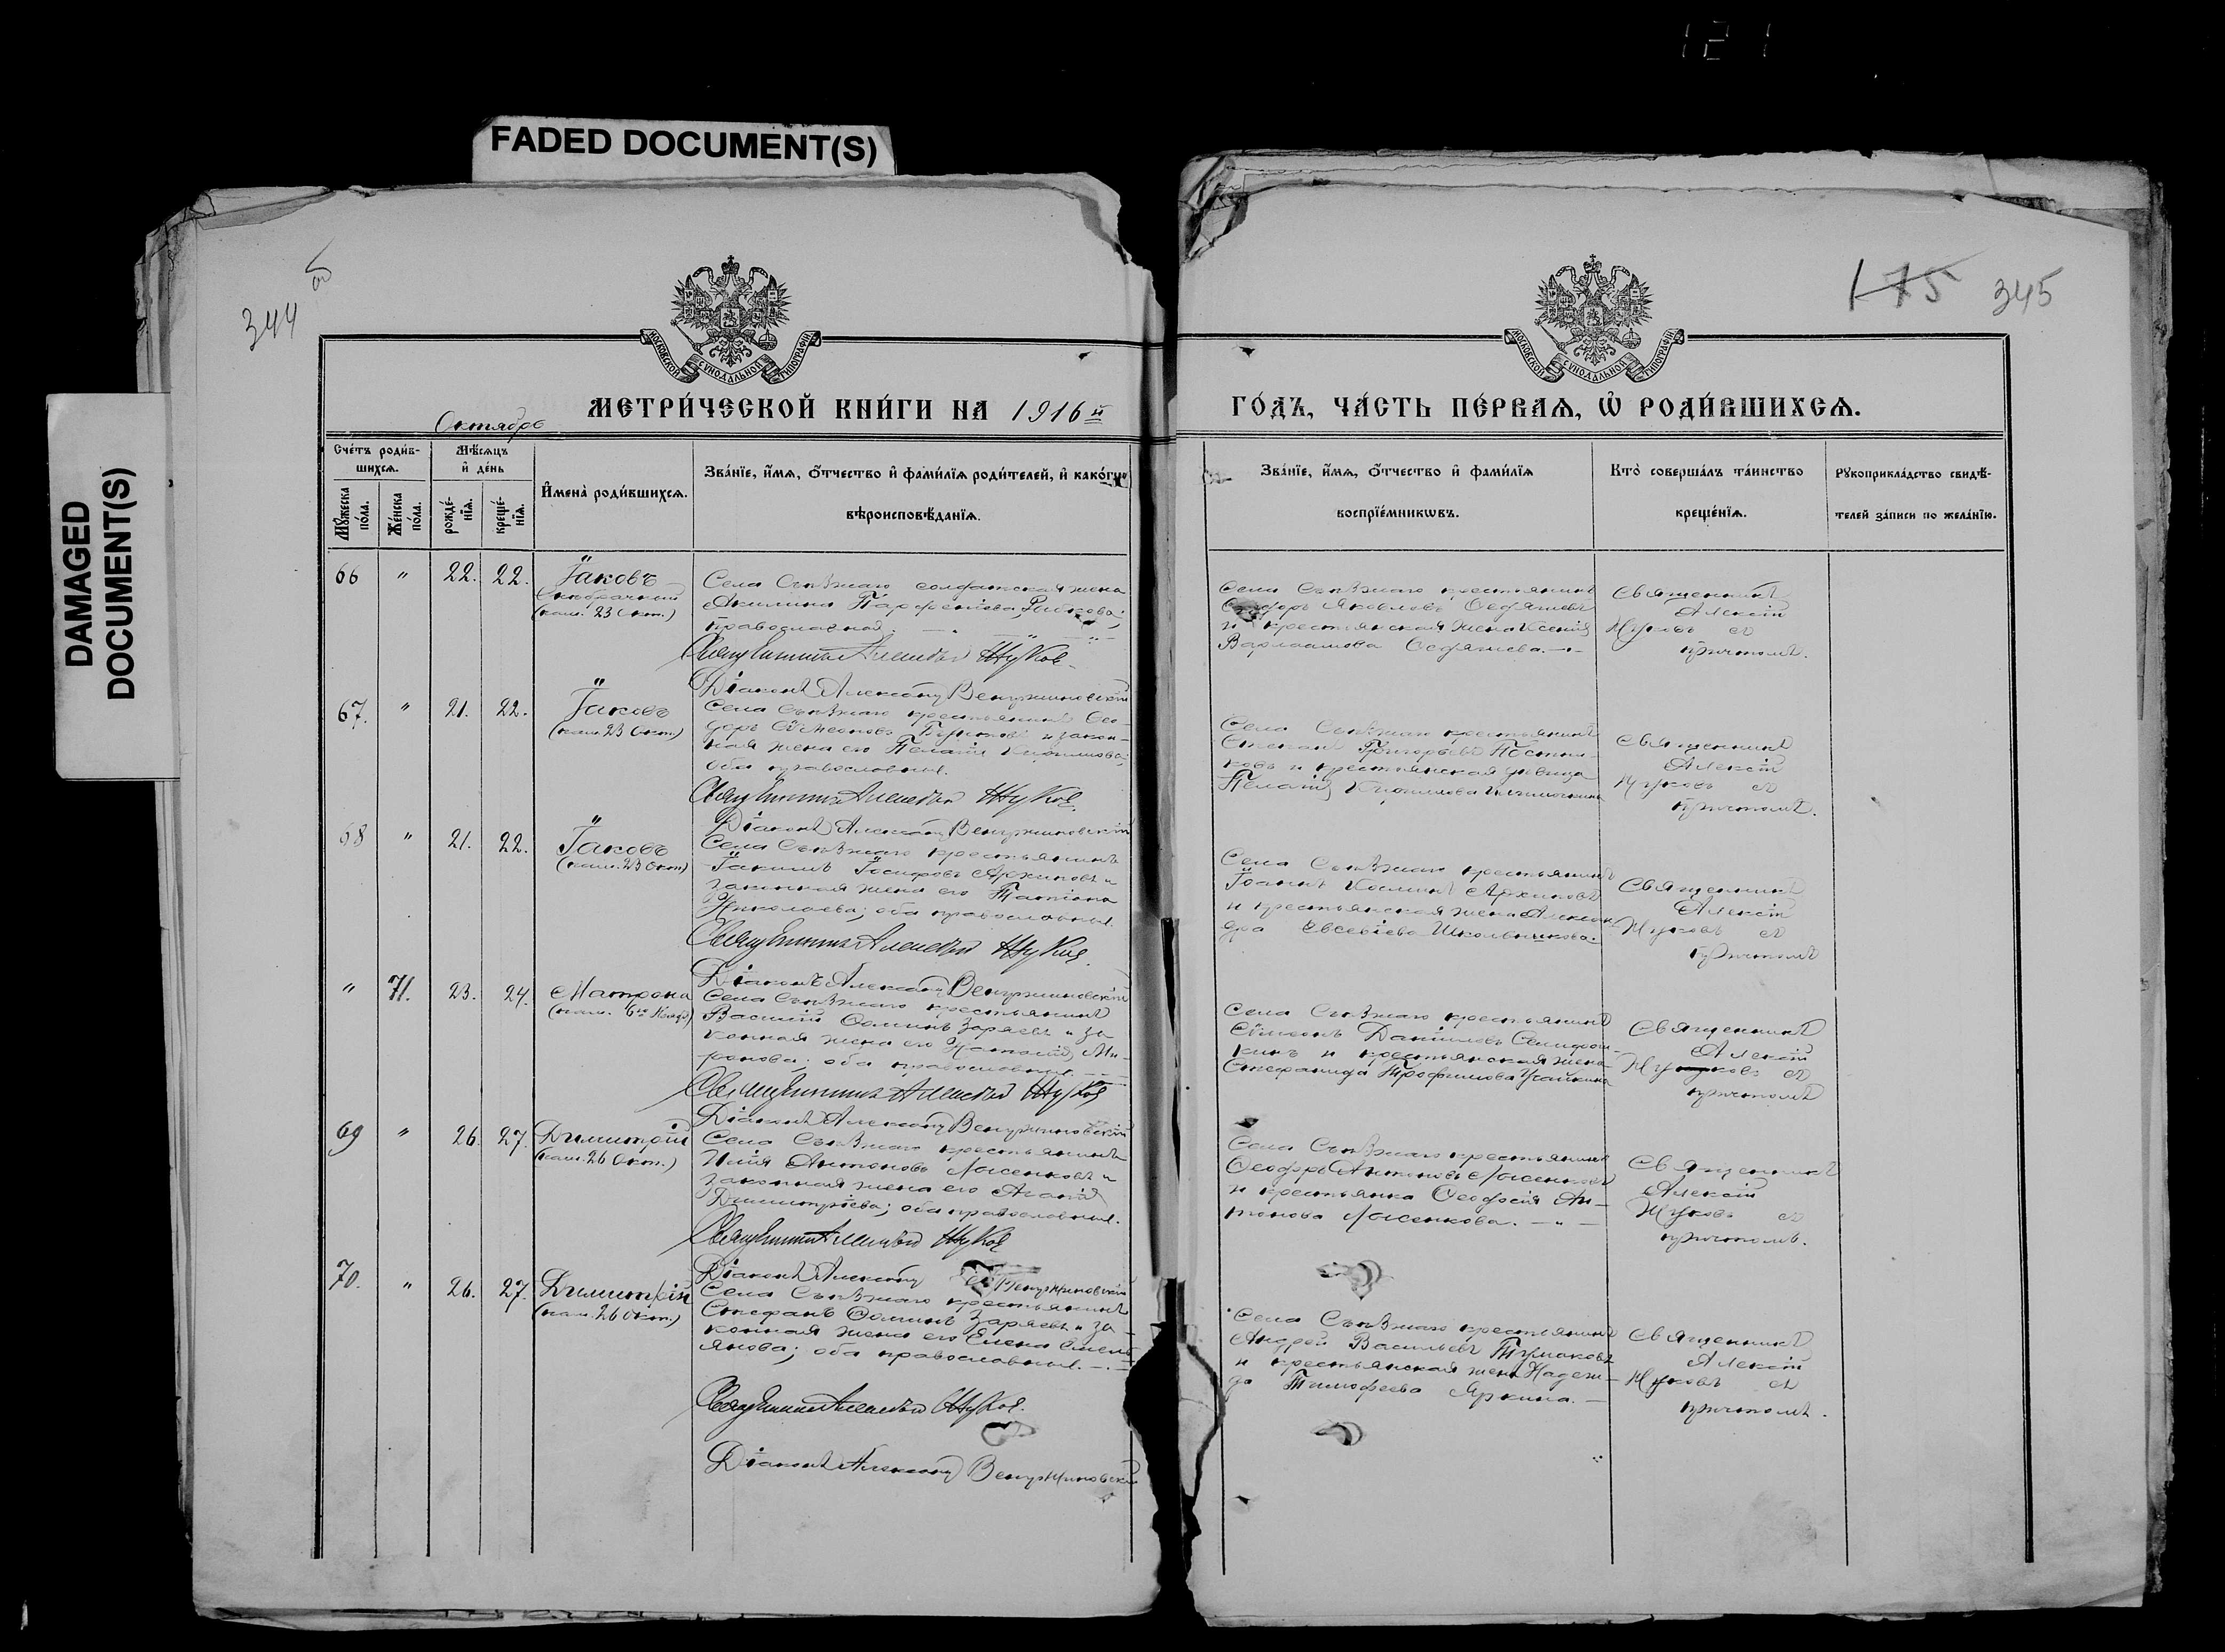 121
FADED DOCUMENT(S)
DAMAGED
DOCUMENT(S)
344 об
175 345
МОСКОВСКОЙ СѴНОДАЛЬНОЙ ТИПОГРАФІИ
МОСКОВСКОЙ СѴНОДАЛЬНОЙ ТИПОГРАФІИ
МЕТРИ́ЧЕСКОЙ КНИ́ГИ НА 1916 й
ГО́ДЪ, ЧА́СТЬ ПЕ́РВАЯ, Ѡ҆ РОДИ́ВШИХСЯ.
Октябрь
Счетъ роди́в-
шихся.
Мꙋжеска по́ла.
Же́нска по́ла.
Мѣсяцъ
и҆ де́нь
рожде́-
нїя.
креще́-
нїя.
И҆мена̀ роди́вшихся.
Зва́нїе, и҆́мя, ѻ҆́тчество и҆ фами́лїя роди́телей, и҆ како́гѡ
вѣроисповѣ́данїя.
Зва́нїе, и҆́мя, ѻ҆́тчество и҆ фами́лїя
воспрїе́мникѡвъ.
Кто̀ соверша́лъ та́инство
креще́нїя.
Рꙋкоприкла́дство свидѣ́-
телей за́писи по жела́нїю.
66 " 22. 22. Іаковъ
(пам. 23 Окт.)
Села Съѣзжаго солдатская жена
Акилина Парфенiева Рыбкова;
православная.
Священникъ Алексѣй Жуковъ
Діаконъ Александръ Венустиновскій
Села Съѣзжаго крестьянинъ
Яковлевъ
и крестьянская жена Ксенія
Варлаамова
Священникъ
Алексій
Жуковъ съ
причтомъ.
67. " 21. 22. Іаковъ
(пам. 23 Окт.)
Села Съѣзжаго крестьянинъ Ѳео-
доръ Сѵмеоновъ и закон-
ная жена его Пелагія
оба православные.
Священникъ Алексѣй Жуковъ
Діаконъ Александръ Венустиновскій
Села Съѣзжаго крестьянинъ
Стефанъ Григорьевъ Постни-
ковъ и крестьянская дѣвица
Пелагія
Священникъ
Алексій
Жуковъ съ
причтомъ.
68 " 21. 22. Іаковъ
(пам. 23 Окт)
Села Съѣзжаго крестьянинъ
Іакимъ Іосифовъ Архиповъ и
законная жена его Татіана
Николаева; оба православные.
Священникъ Алексѣй Жуковъ
Діаконъ Александръ Венустиновскій
Села Съѣзжаго крестьянинъ
Іоаннъ Косминъ Архиповъ
и крестьянская жена Алексан-
дра Евсевіева Школьникова.
Священникъ
Алексій
Жуковъ съ
причтомъ
" 71. 23. 24. Матрона
(пам. 6го Нояб.)
Села Съѣзжаго крестьянинъ
Василій Ѳоминъ Заряевъ и за
конная жена его Наталія Ми-
ронова; оба православные.
Священникъ Алексѣй Жуковъ
Діаконъ Александръ Венустиновскій
Села Съѣзжаго крестьянинъ
Сѵмеонъ Даніиловъ
кинъ и крестьянская жена
Стефанида Трофимова Чгайкина
Священникъ
Алексій
Жуковъ съ
причтомъ
69 " 26. 27. Димитрій
(пам. 26 Окт.)
Села Съѣзжаго крестьянинъ
Илія Антоновъ Лысенковъ и
законная жена его Агапія
Димитріева; оба православные.
Священникъ Алексѣй Жуковъ
Діаконъ Александръ Венустиновскій
Села Съѣзжаго крестьянинъ
Ѳеодоръ Антоновъ Лысенковъ
и крестьянка Ѳеодосія Ан-
тонова Лысенкова.
Священникъ
Алексій
Жуковъ съ
причтомъ.
70. " 26. 27. Димитрій
(пам. 26 Окт.)
Села Съѣзжаго крестьянинъ
Стефанъ Ѳоминъ Заряевъ и за
конная жена его Елена Емель-
янова; оба православные.
Священникъ Алексѣй Жуковъ.
Діаконъ Александръ Венустиновскій
Села Съѣзжаго крестьянинъ
Андрей Васильевъ Тумаковъ
и крестьянская жена Надеж-
да Тимофеева Яркина.
Священникъ
Алексій
Жуковъ съ
причтомъ.